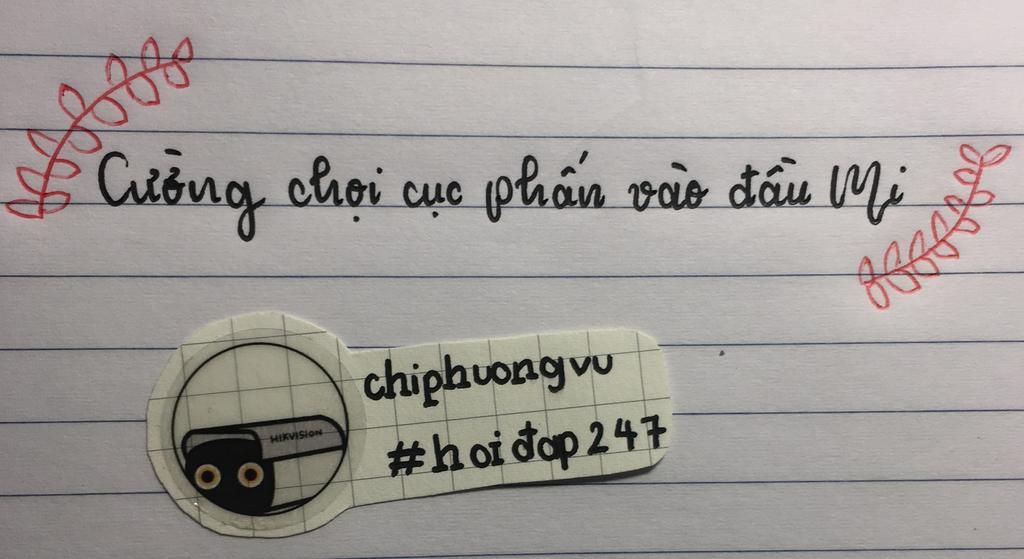 Cường chọi cục phấn vào đầu Mi
chiphuongvu
HIKVISION
#hoiđap247